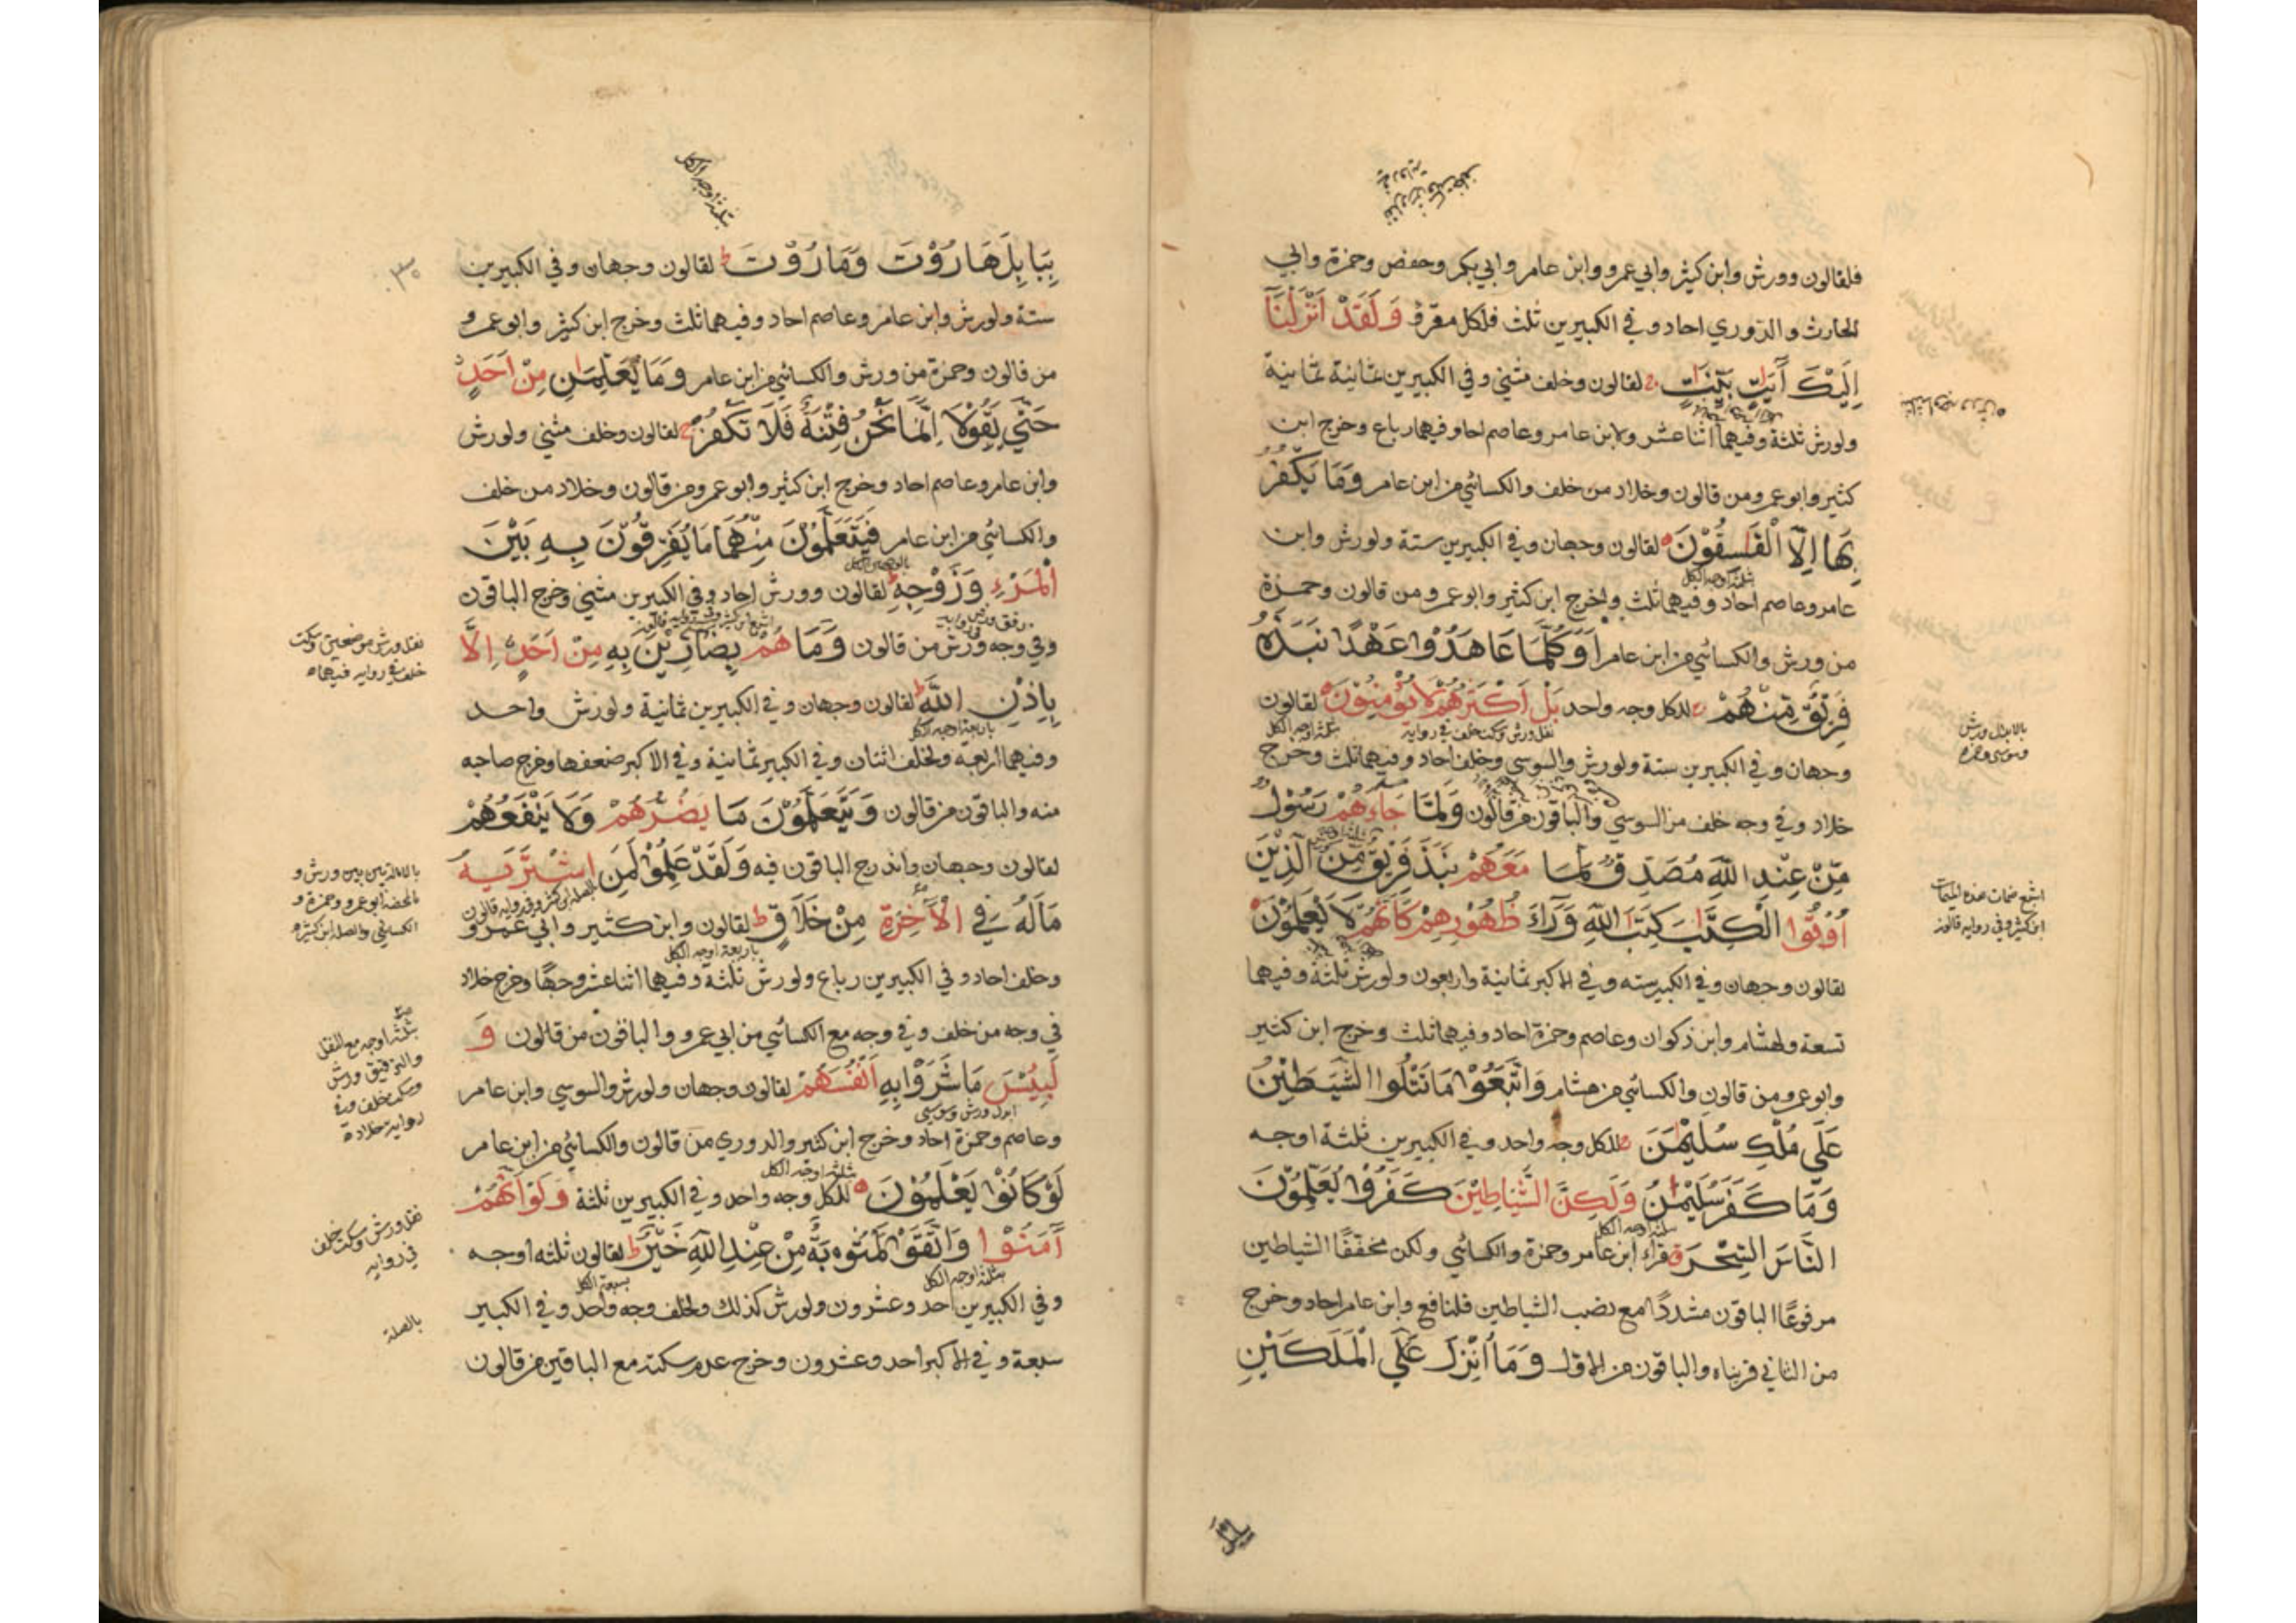 فلقالون وورش وابن كثير وابي عمرو وابن عامر وابي بكر وحفص وحمزة وابي
الحارث والدوري احاد وفي الكبيرين ثلث فلكل مقرئ وَلَقَدْ اَنْزَلْنَآ
اِلَيْكَ اٰيٰتٍ بَيِّنٰتٍ ج لقالون وخلف مثنى وفي الكبيرين ثمانية ثمانية
ولورش ثلثة وفيهما اثنا عشر ولابن عامر وعاصم احاد وفيهما رباع وخرج ابن
كثير وابو عمرو من قالون وخلاد من خلف والكسائي من ابن عامر وَمَا يَكْفُرُ
بِهَا اِلَّا الْفٰسِقُوْنَ ه لقالون وجهان وفي الكبيرين ستة ولورش وابن
ثلثة اوجه الكل
عامر وعاصم احاد وفيهما ثلث وخرج ابن كثير وابو عمرو من قالون وحمزة
من ورش والكسائي من ابن عامر اَوَكُلَّمَا عَاهَدُوْا عَهْدًا نَبَذَهُ
فَرِيْقٌ مِّنْهُمْ ط للكل وجه واحد بَلْ اَكْثَرُهُمْ لَا يُؤْمِنُوْنَ ه لقالون
نقل ورش وسكت خلف في رواية ثلثة اوجه الكل
وجهان وفي الكبيرين ستة ولورش والسوسي وخلف احاد وفيهما ثلث وخرج
خلاد وفي وجه خلف من السوسي والباقون من قالون وَلَمَّا جَاءَهُمْ رَسُوْلٌ
مِّنْ عِنْدِ اللّٰهِ مُصَدِّقٌ لِّمَا مَعَهُمْ نَبَذَ فَرِيْقٌ مِّنَ الَّذِيْنَ
اُوْتُوا الْكِتٰبَ كِتٰبَ اللّٰهِ وَرَاءَ ظُهُوْرِهِمْ كَاَنَّهُمْ لَا يَعْلَمُوْنَ ه
لقالون وجهان وفي الكبير سته وفي الاكبر ثمانية واربعون ولورش ثلثة وفيهما
تسعة ولهشام وابن ذكوان وعاصم وحمزة احاد وفيهما ثلث وخرج ابن كثير
وابو عمرو من قالون والكسائي من هشام وَاتَّبَعُوْا مَا تَتْلُوا الشَّيٰطِيْنُ
عَلٰى مُلْكِ سُلَيْمٰنَ ج للكل وجه واحد وفي الكبيرين ثلثة اوجه
وَمَا كَفَرَ سُلَيْمٰنُ وَلٰكِنَّ الشَّيَاطِيْنَ كَفَرُوْا يُعَلِّمُوْنَ
ثلثة اوجه الكل
النَّاسَ السِّحْرَ ق قرأ ابن عامر وحمزة والكسائي ولكن مخففًا الشياطين
مرفوعًا الباقون مشددًا مع نصب الشياطين فلنافع وابن عامر احاد وخرج
من الثاني قريناه والباقون من الاول وَمَا اُنْزِلَ عَلَى الْمَلَكَيْنِ
ببابل
بالابدال ورش
وسوسي وحمزه
اشبع ضمات هذه الميمات
ابن كثير وفي رواية قالون
ثلثة اوجه الكل
بِبَابِلَ هَارُوْتَ وَمَارُوْتَ ط لقالون وجهان وفي الكبيرين
ستة ولورش وابن عامر وعاصم احاد وفيهما ثلث وخرج ابن كثير وابو عمرو
من قالون وحمزة من ورش والكسائي من ابن عامر وَمَا يُعَلِّمٰنِ مِنْ اَحَدٍ
حَتّٰى يَقُوْلَا اِنَّمَا نَحْنُ فِتْنَةٌ فَلَا تَكْفُرْ ط لقالون وخلف مثنى ولورش
وابن عامر وعاصم احاد وخرج ابن كثير وابو عمرو من قالون وخلاد من خلف
والكسائي من ابن عامر فَيَتَعَلَّمُوْنَ مِنْهُمَا مَا يُفَرِّقُوْنَ بِهِ بَيْنَ
الْمَرْءِ وَزَوْجِهِ ط لقالون وورش احاد وفي الكبيرين مثنى وخرج الباقون
وفي وجه ورش من قالون وَمَا هُمْ بِضَارِّيْنَ بِهِ مِنْ اَحَدٍ اِلَّا
بِاِذْنِ اللّٰهِ ط لقالون وجهان وفي الكبيرين ثمانية ولورش واحد
باربعة اوجه الكل
وفيهما اربعة ولخلف اثنان وفي الكبير ثمانية وفي الاكبر ضعفها وخرج صاحبه
منه والباقون من قالون وَيَتَعَلَّمُوْنَ مَا يَضُرُّهُمْ وَلَا يَنْفَعُهُمْ
لقالون وجهان واندرج الباقون فيه وَلَقَدْ عَلِمُوْا لَمَنِ اشْتَرٰىهُ
مَالَهُ فِي الْاٰخِرَةِ مِنْ خَلَاقٍ ط لقالون وابن كثير وابي عمرو
باربعة اوجه الكل
وخلف احاد وفي الكبيرين رباع ولورش ثلثة وفيهما اثنا عشر وجهًا وخرج خلاد
في وجه من خلف وفي وجه مع الكسائي من ابي عمرو والباقون من قالون وَ
لَبِئْسَ مَا شَرَوْا بِهِ اَنْفُسَهُمْ لقالون وجهان ولورش والسوسي وابن عامر
ابدل ورش وسوسي
وعاصم وحمزة احاد وخرج ابن كثير والدوري من قالون والكسائي من ابن عامر
ثلثة اوجه الكل
لَوْ كَانُوْا يَعْلَمُوْنَ ه للكل وجه واحد وفي الكبيرين ثلثة وَلَوْ اَنَّهُمْ
اٰمَنُوْا وَاتَّقَوْا لَمَثُوْبَةٌ مِّنْ عِنْدِ اللّٰهِ خَيْرٌ ط لقالون ثلثه اوجه
بثلثة اوجه الكل بسبعة الكل
وفي الكبيرين احد وعشرون ولورش كذلك ولخلف وجه واحد وفي الكبير
سبعة وفي الاكبر احد وعشرون وخرج عدم سكته مع الباقين من قالون
نقل ورش موضعين وسكت
خلف في رواية فيهما
بالامالة بين بين ورش و
المحضه ابو عمرو وحمزة و
الكسائي والصله ابن كثير
ثلثة اوجه مع النقل
والترقيق ورش
وسكت خلف وفي
رواية خلاد
نقل ورش وسكت خلف
في رواية
بالصلة